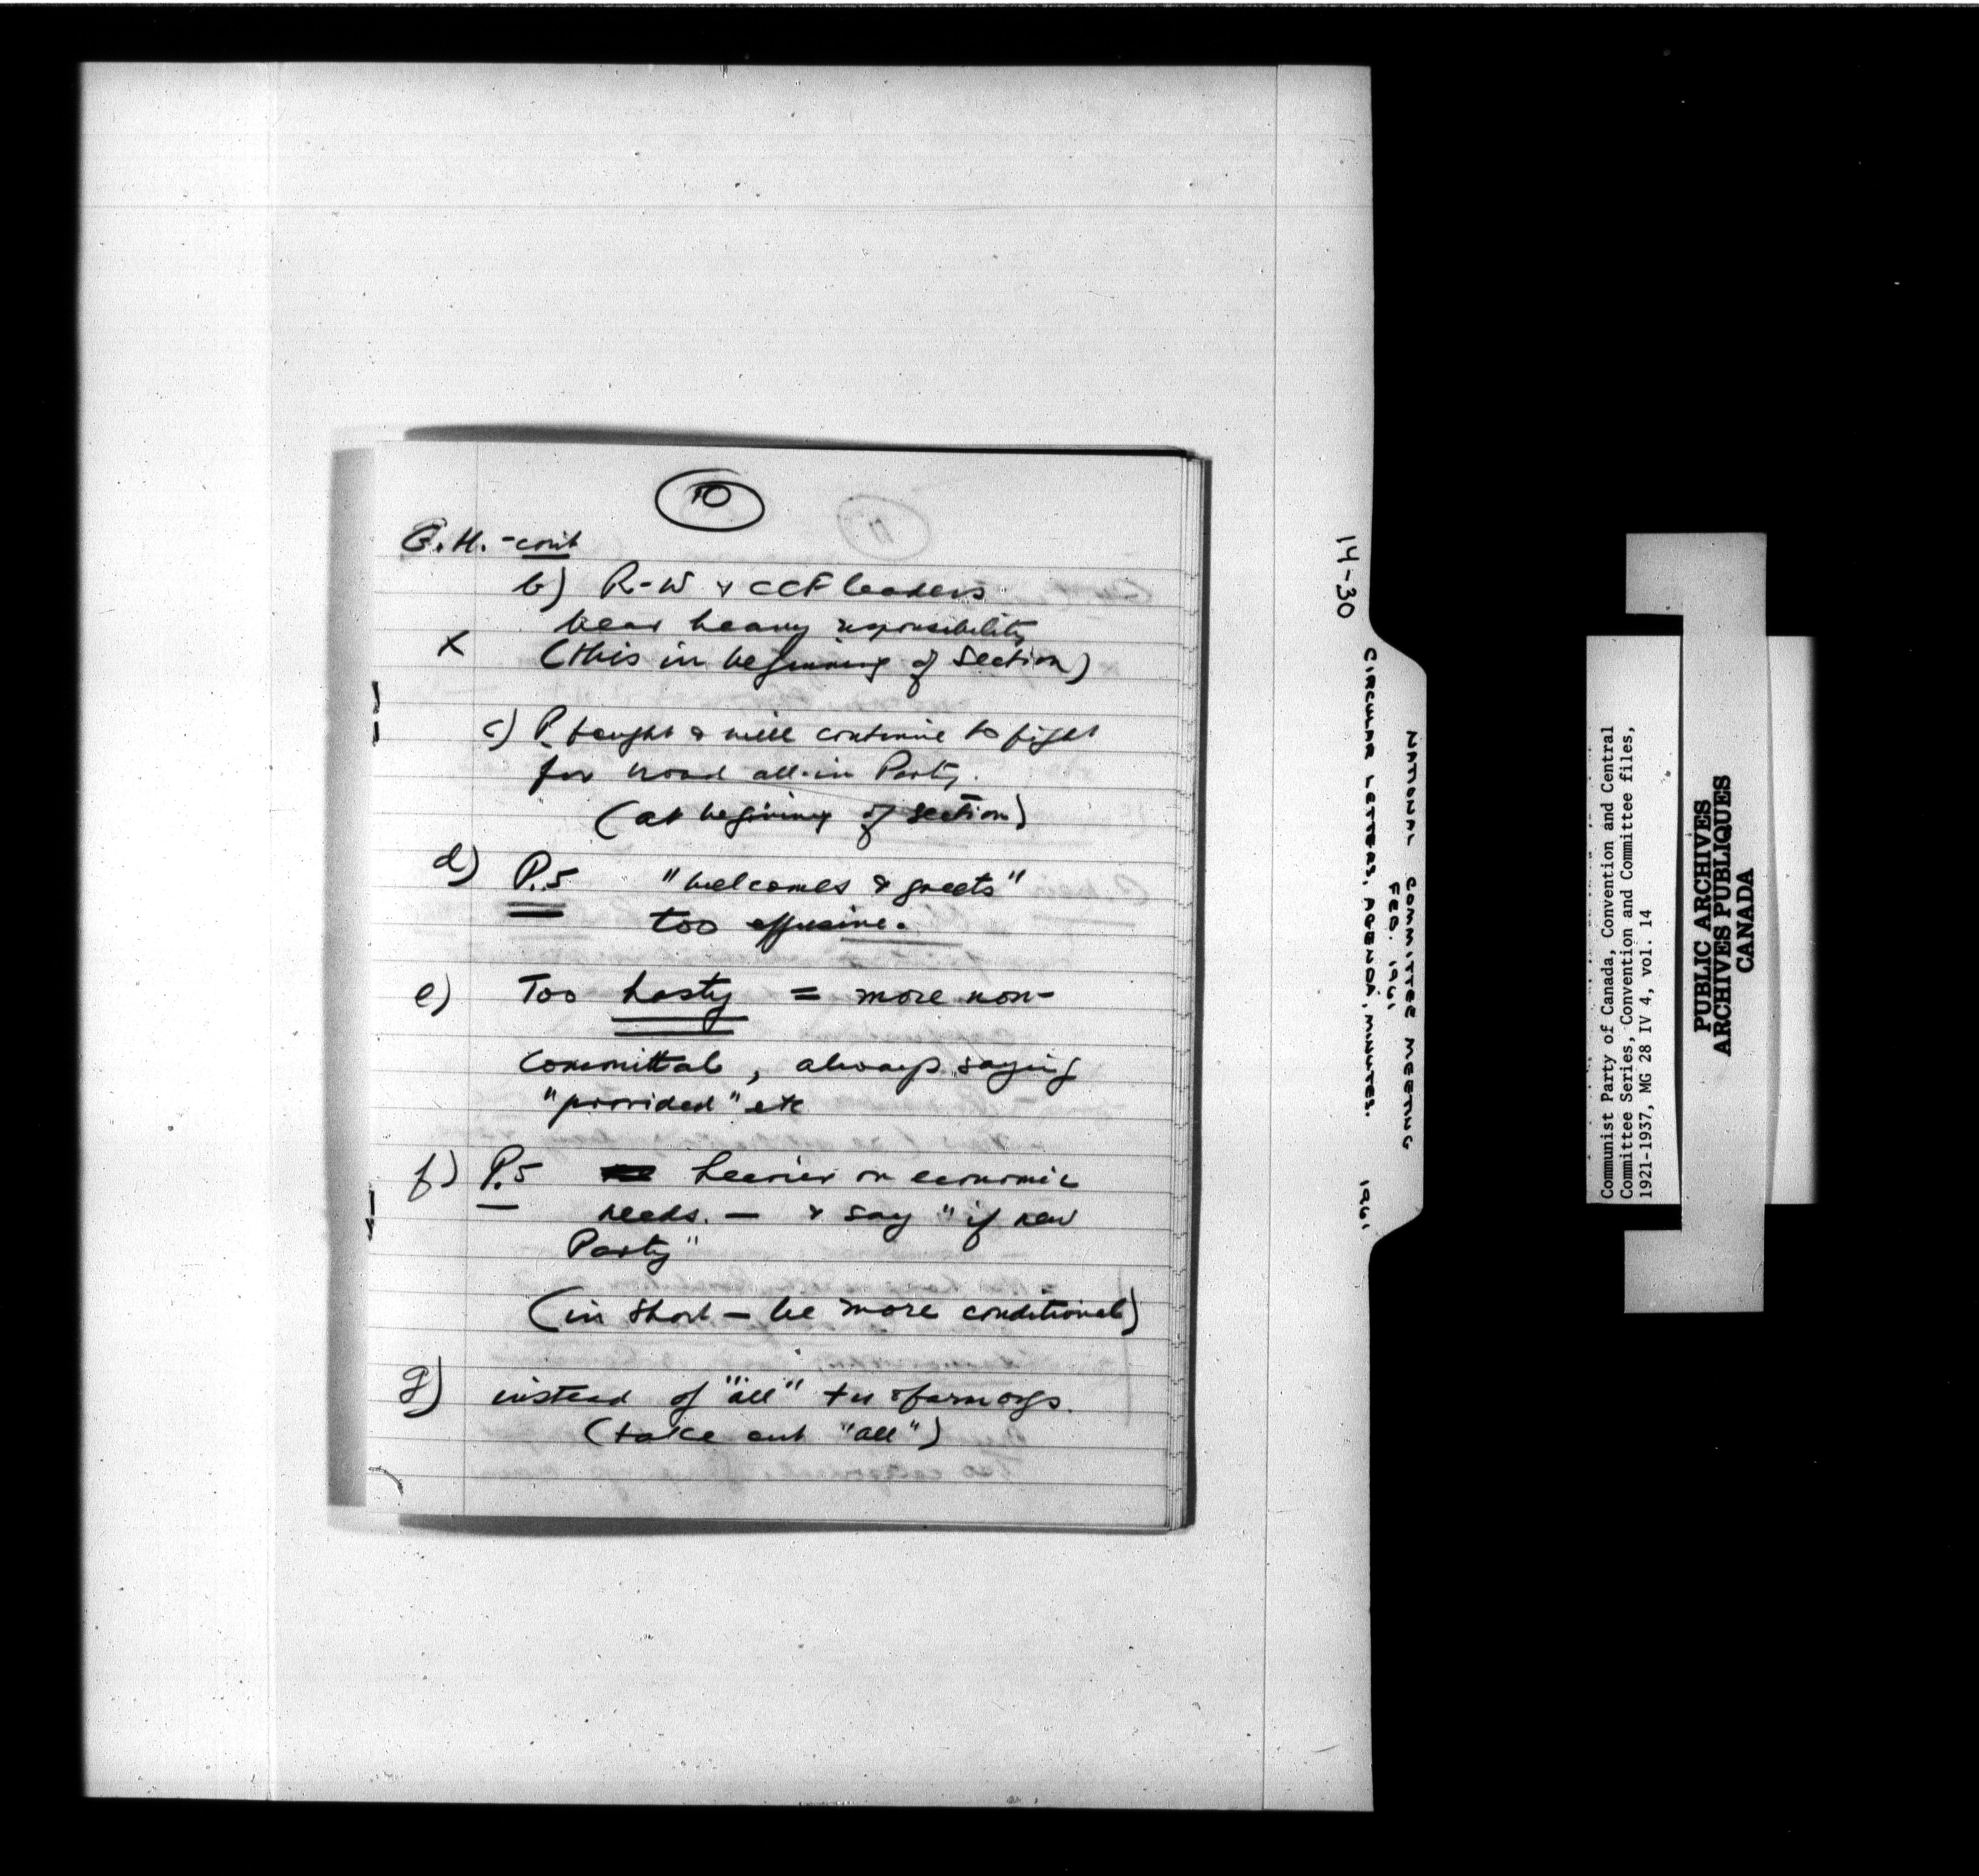 10
E.H. - cont
b) R-W & CCF leaders
bear heavy responsibility
x (this in beginning of section)
c) P. fought & will continue to fight
for broad all-in Party.
(at begining of section)
d) P.5 "welcomes & greets"
too effusive.
e) Too hasty = more non-
committal, always saying
"provided" etc
f) P.5 heavier on economic
needs. - & say "if new
Party"
(in short - be more conditional)
g) instead of "all" tu & farm orgs.
(take out "all")
14-30
NATIONAL COMMITTEE MEETING
FEB. 1961,
CIRCULAR LETTERS, AGENDA, MINUTES. 1961
Communist Party of Canada, Convention and Central
Committee Series, Convention and Committee files,
1921-1937, MG 28 IV 4, vol. 14
PUBLIC ARCHIVES
ARCHIVES PUBLIQUES
CANADA